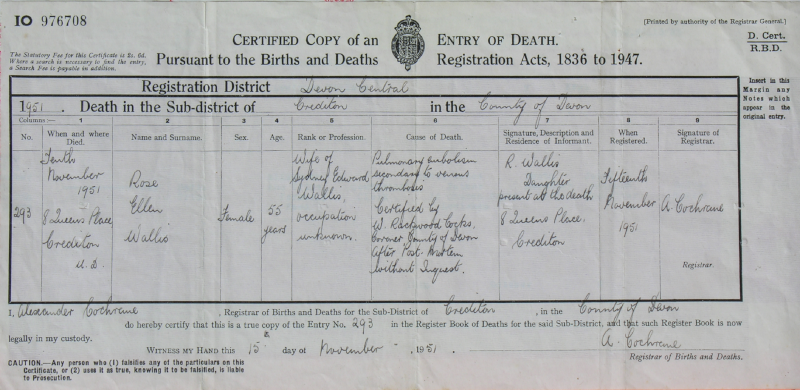 IO 976708
(Printed by authority of the Registrar General.)
CERTIFIED COPY of an ENTRY OF DEATH.
D. Cert.
R.B.D.
The Statutory Fee for this Certificate is 2s. 6d.
Where a search is necessary to find the entry,
a Search Fee is payable in addition.
Pursuant to the Births and Deaths Registration Acts, 1836 to 1947.
Registration District Devon Central
Insert in this
Margin any
Notes which
appear in the
original entry.
1951. Death in the Sub-district of Crediton in the County of Devon
Columns:— 1 2 3 4 5 6 7 8 9
No.
When and where
Died.
Name and Surname.
Sex.
Age.
Rank or Profession.
Cause of Death.
Signature, Description and
Residence of Informant.
When
Registered.
Signature of
Registrar.
293
Tenth
November
1951
8 Queens Place
Crediton
U.D.
Rose
Ellen
Wallis
Female
55
years
Wife of
Sydney Edward
Wallis,
occupation
unknown.
Pulmonary embolism
secondary to venous
thrombosis
Certified by
W. Cocks.
Coroner County of Devon
After Post-Mortem
without Inquest.
R. Wallis
Daughter
present at the death
8 Queens Place,
Crediton
Fifteenth
November
1951
A Cochrane
Registrar.
I, Alexander Cochrane, Registrar of Births and Deaths for the Sub-District of Crediton, in the County of Devon
do hereby certify that this is a true copy of the Entry No. 293 in the Register Book of Deaths for the said Sub-District, and that such Register Book is now
legally in my custody.
WITNESS MY HAND this 15 day of November, 1951.
A. Cochrane
Registrar of Births and Deaths.
CAUTION.—Any person who (1) falsifies any of the particulars on this
Certificate, or (2) uses it as true, knowing it to be falsified, is liable
to Prosecution.